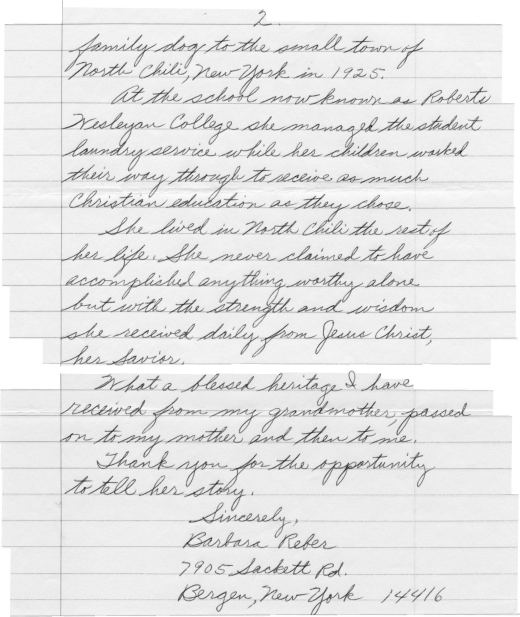 2.
family dog to the small town of
North Chili, New York in 1925.
At the school now known as Roberts
Wesleyan College she managed the student
laundry service while her children worked
their way through to receive as much
Christian education as they chose.
She lived in North Chili the rest of
her life. She never claimed to have
accomplished anything worthy alone
but with the strength and wisdom
she received daily from Jesus Christ,
her Savior.
What a blessed heritage I have
received from my grandmother, passed
on to my mother and then to me.
Thank you for the opportunity
to tell her story.
Sincerely,
Barbara Reber
7905 Sackett Rd.
Bergen, New York 14416